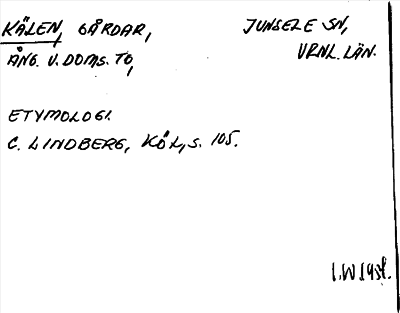 KÄLEN, GÅRDAR, JUNSELE SN,
ÅNG. V. DOMS. TG, VRNL. LÄN.
ETYMOLOGI.
C. LINDBERG, KÖL, S. 105.